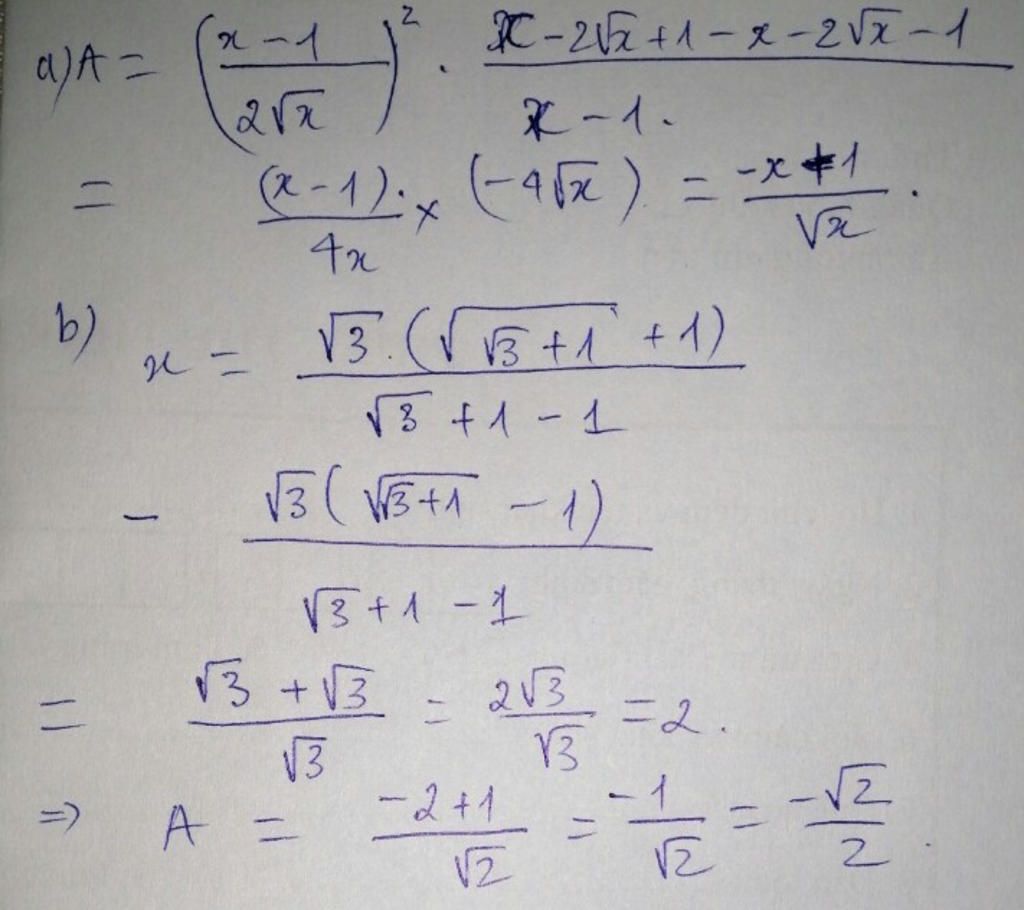 a) A = (x - 1 / 2√x)² . x - 2√x + 1 - x - 2√x - 1 / x - 1.
= (x - 1). / 4x × (-4√x) = -x + 1 / √x .
b) x = √3 . (√(√3 + 1) + 1) / √3 + 1 - 1
- √3 (√(√3 + 1) - 1) / √3 + 1 - 1
= √3 + √3 / √3 = 2√3 / √3 = 2 .
⇒ A = -2 + 1 / √2 = -1 / √2 = -√2 / 2 .